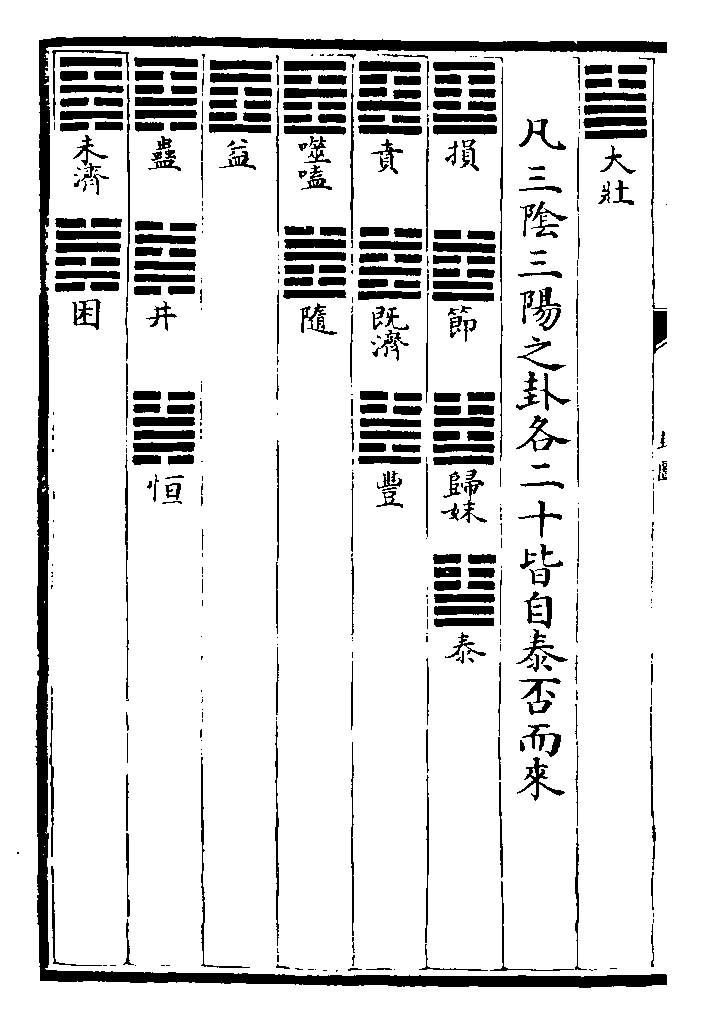 大壯
凡三陰三陽之卦各二十皆自泰否而來
損 節 歸妹 泰
賁 既濟 豐
噬嗑 隨
益
蠱 井 恒
未濟 困